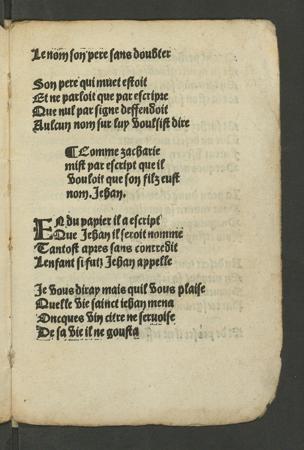 Le nom son pere sans doubter
Son pere qui muet estoit
Et ne parloit que par escripre
Que nul par signe deffendoit
Aulcun nom sur luy voulsist dire
¶Comme zacharie
mist par escript que il
vouloit que son filz eust
nom. Jehan.
En du papier il a escript
Que Jehan il seroit nomme
Tantost apres sans contredit
Lenfant si futz Jehan appelle
Je vous diray mais quil vous plaise
Quelle vie sainct iehan mena
Oncques vin citre ne servoise
De sa vie il ne gousta